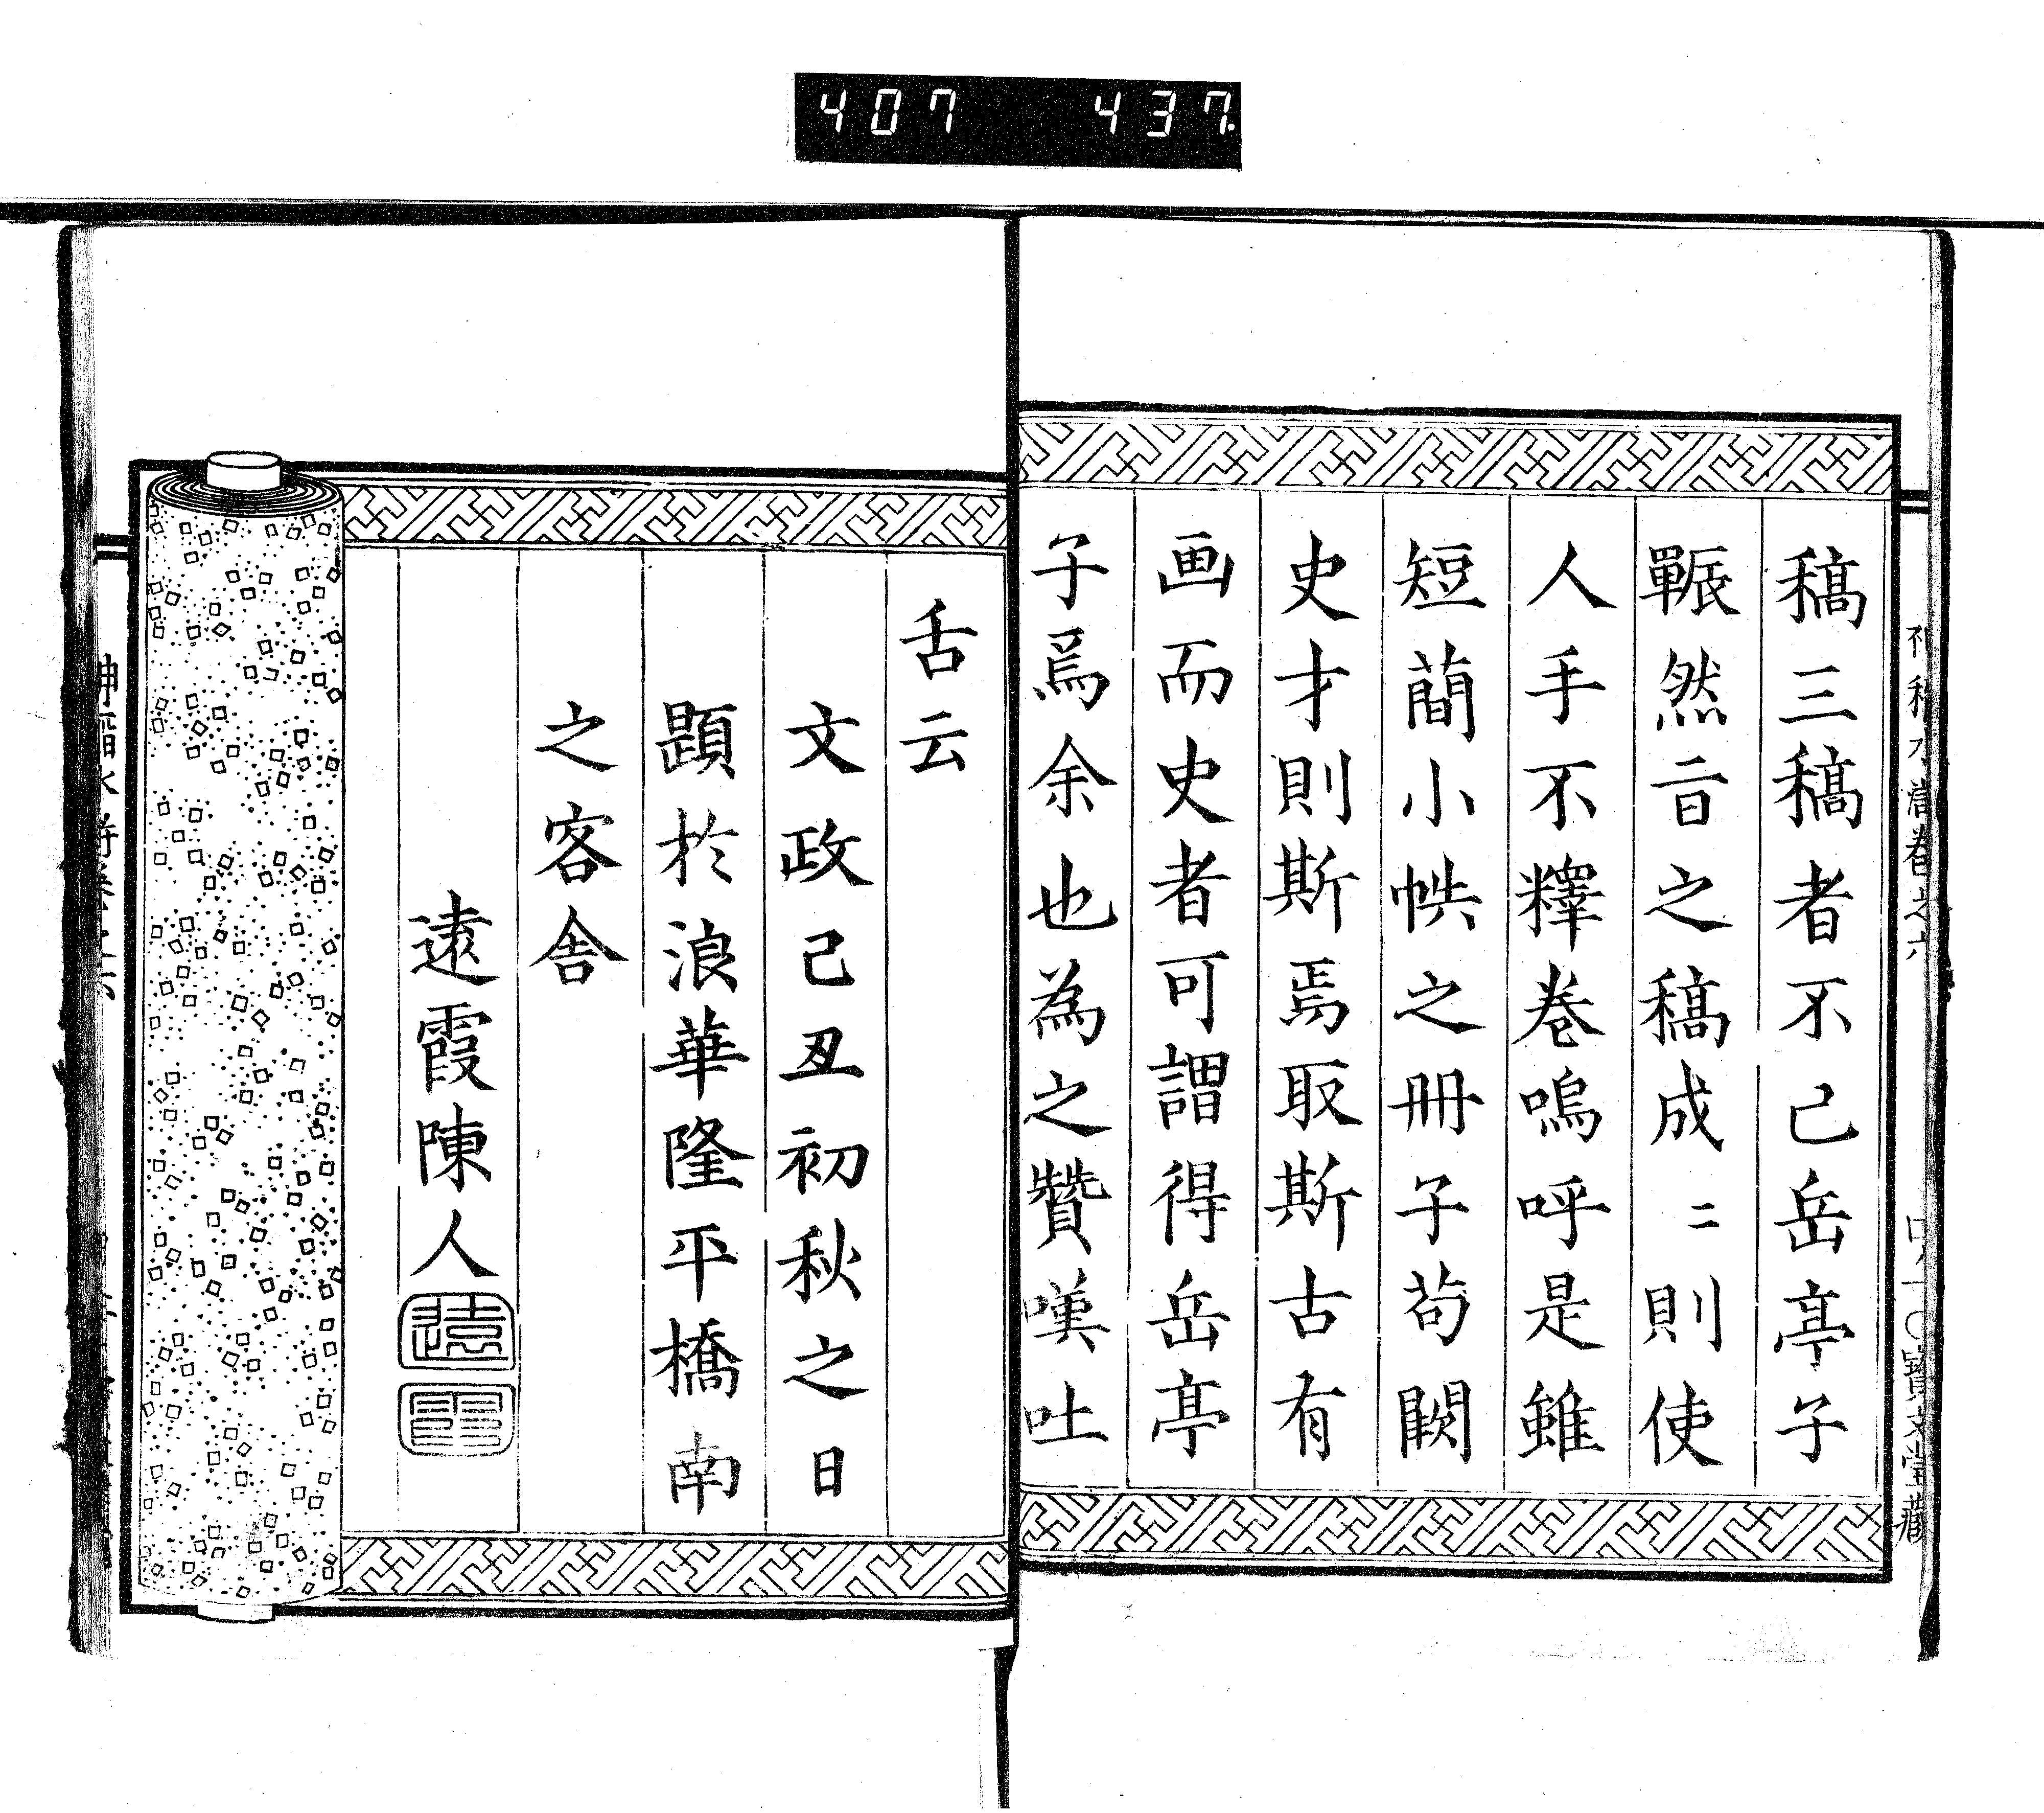 407 437.
稿三稿者不已岳亭子
囅然曰之稿成〻則使
人手不釋卷嗚呼是雖
短簡小帙之冊子苟闕
史才則斯焉取斯古有
画而史者可謂得岳亭
子焉余也為之贊嘆吐
舌云
文政己丑初秋之日
題於浪華隆平橋南
之客舎
遠霞陳人